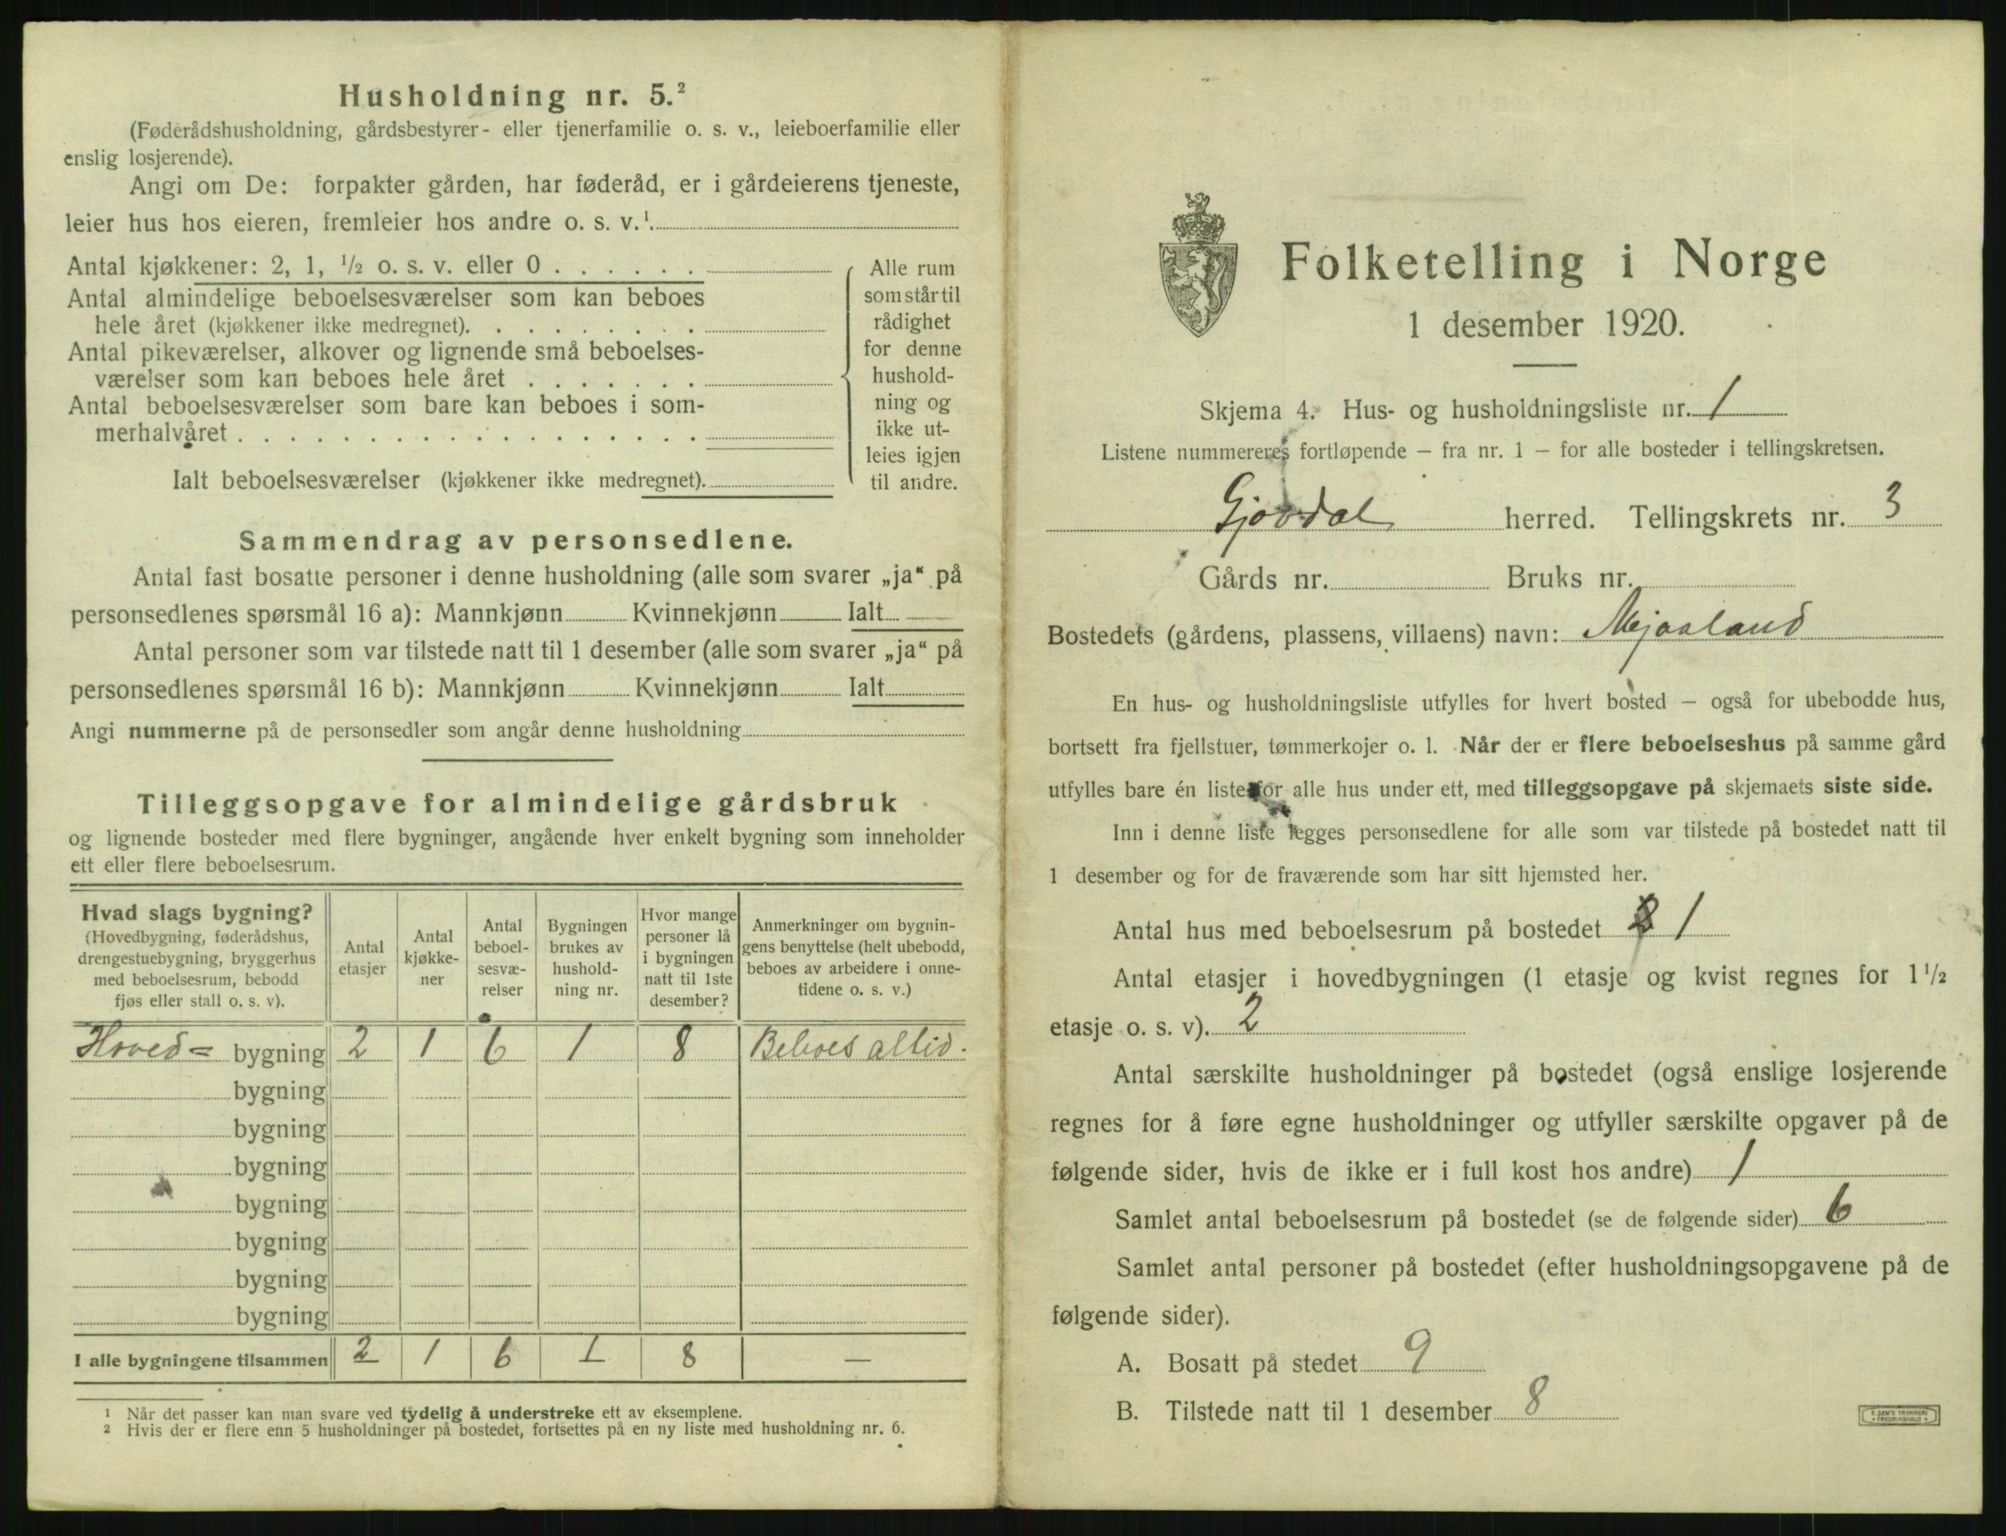 Husholdning nr. 5.²
(Føderådshusholdning, gårdsbestyrer- eller tjenerfamilie o. s. v., leieboerfamilie eller
enslig losjerende).
Angi om De: forpakter gården, har føderåd, er i gårdeierens tjeneste,
leier hus hos eieren, fremleier hos andre o. s. v.¹
Antal kjøkkener: 2, 1, ½ o. s. v. eller 0 . . . . . .
Antal almindelige beboelsesværelser som kan beboes
hele året (kjøkkener ikke medregnet). . . . . . . . .
Antal pikeværelser, alkover og lignende små beboelses-
værelser som kan beboes hele året . . . . . . .
Antal beboelsesværelser som bare kan beboes i som-
merhalvåret . . . . . . . . . . . . . . . . .
Ialt beboelsesværelser (kjøkkener ikke medregnet).
Alle rum
som står til
rådighet
for denne
hushold-
ning og
ikke ut-
leies igjen
til andre.
Sammendrag av personsedlene.
Antal fast bosatte personer i denne husholdning (alle som svarer „ja“ på
personsedlenes spørsmål 16 a): Mannkjønn Kvinnekjønn Ialt
Antal personer som var tilstede natt til 1 desember (alle som svarer „ja“ på
personsedlenes spørsmål 16 b): Mannkjønn Kvinnekjønn Ialt
Angi nummerne på de personsedler som angår denne husholdning
Tilleggsopgave for almindelige gårdsbruk
og lignende bosteder med flere bygninger, angående hver enkelt bygning som inneholder
ett eller flere beboelsesrum.
Hvad slags bygning?
(Hovedbygning, føderådshus,
drengestuebygning, bryggerhus
med beboelsesrum, bebodd
fjøs eller stall o. s. v).
Antal
etasjer
Antal
kjøkke-
ner
Antal
beboel-
sesvæ-
relser
Bygningen
brukes av
hushold-
ning nr.
Hvor mange
personer lå
i bygningen
natt til 1ste
desember?
Anmerkninger om bygnin-
gens benyttelse (helt ubebodd,
beboes av arbeidere i onne-
tidene o. s. v.)
Hoved= bygning 2 1 6 1 8 Beboes altid.
bygning
bygning
bygning
bygning
bygning
bygning
bygning
I alle bygningene tilsammen 2 1 6 1 8 —
¹ Når det passer kan man svare ved tydelig å understreke ett av eksemplene.
² Hvis der er flere enn 5 husholdninger på bostedet, fortsettes på en ny liste med husholdning nr. 6.
Folketelling i Norge
1 desember 1920.
Skjema 4. Hus- og husholdningsliste nr. 1
Listene nummereres fortløpende — fra nr. 1 — for alle bosteder i tellingskretsen.
Gjøvdal herred. Tellingskrets nr. 3
Gårds nr. Bruks nr.
Bostedets (gårdens, plassens, villaens) navn: Mjaaland
En hus- og husholdningsliste utfylles for hvert bosted — også for ubebodde hus,
bortsett fra fjellstuer, tømmerkojer o. l. Når der er flere beboelseshus på samme gård
utfylles bare én liste for alle hus under ett, med tilleggsopgave på skjemaets siste side.
Inn i denne liste legges personsedlene for alle som var tilstede på bostedet natt til
1 desember og for de fraværende som har sitt hjemsted her.
Antal hus med beboelsesrum på bostedet 1
Antal etasjer i hovedbygningen (1 etasje og kvist regnes for 1½
etasje o. s. v). 2
Antal særskilte husholdninger på bostedet (også enslige losjerende
regnes for å føre egne husholdninger og utfyller særskilte opgaver på de
følgende sider, hvis de ikke er i full kost hos andre) 1
Samlet antal beboelsesrum på bostedet (se de følgende sider) 6
Samlet antal personer på bostedet (efter husholdningsopgavene på de
følgende sider).
A. Bosatt på stedet 9
B. Tilstede natt til 1 desember 8